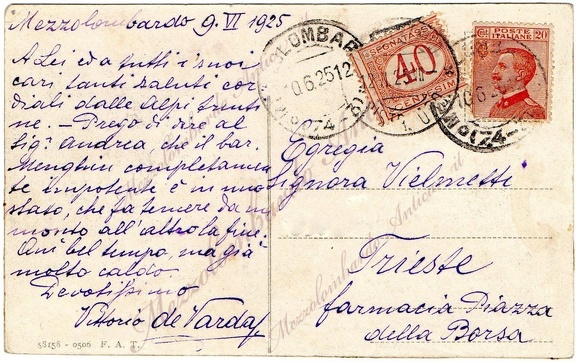 Mezzolombardo 9. VI 1925
A Lei ed a tutti i suoi
cari tanti saluti cor
diali dalle Alpi trenti
ne. – Prego di dire al
Sig. Andrea che il bar.
Menghin completamen
te impotente è in uno
stato, che fa temere da mo
mento all'altro la fine.
Qui bel tempo, ma già
molto caldo.
Devotissimo
Vittorio de Varda
58156 - 0506 F. A. T.
LOMBAR
10.6.25 12
SEGNATASSE
40
CENTESIMI
POSTE ITALIANE 20
Egregia
Signora Vielmetti
Trieste
farmacia Piazza
della Borsa